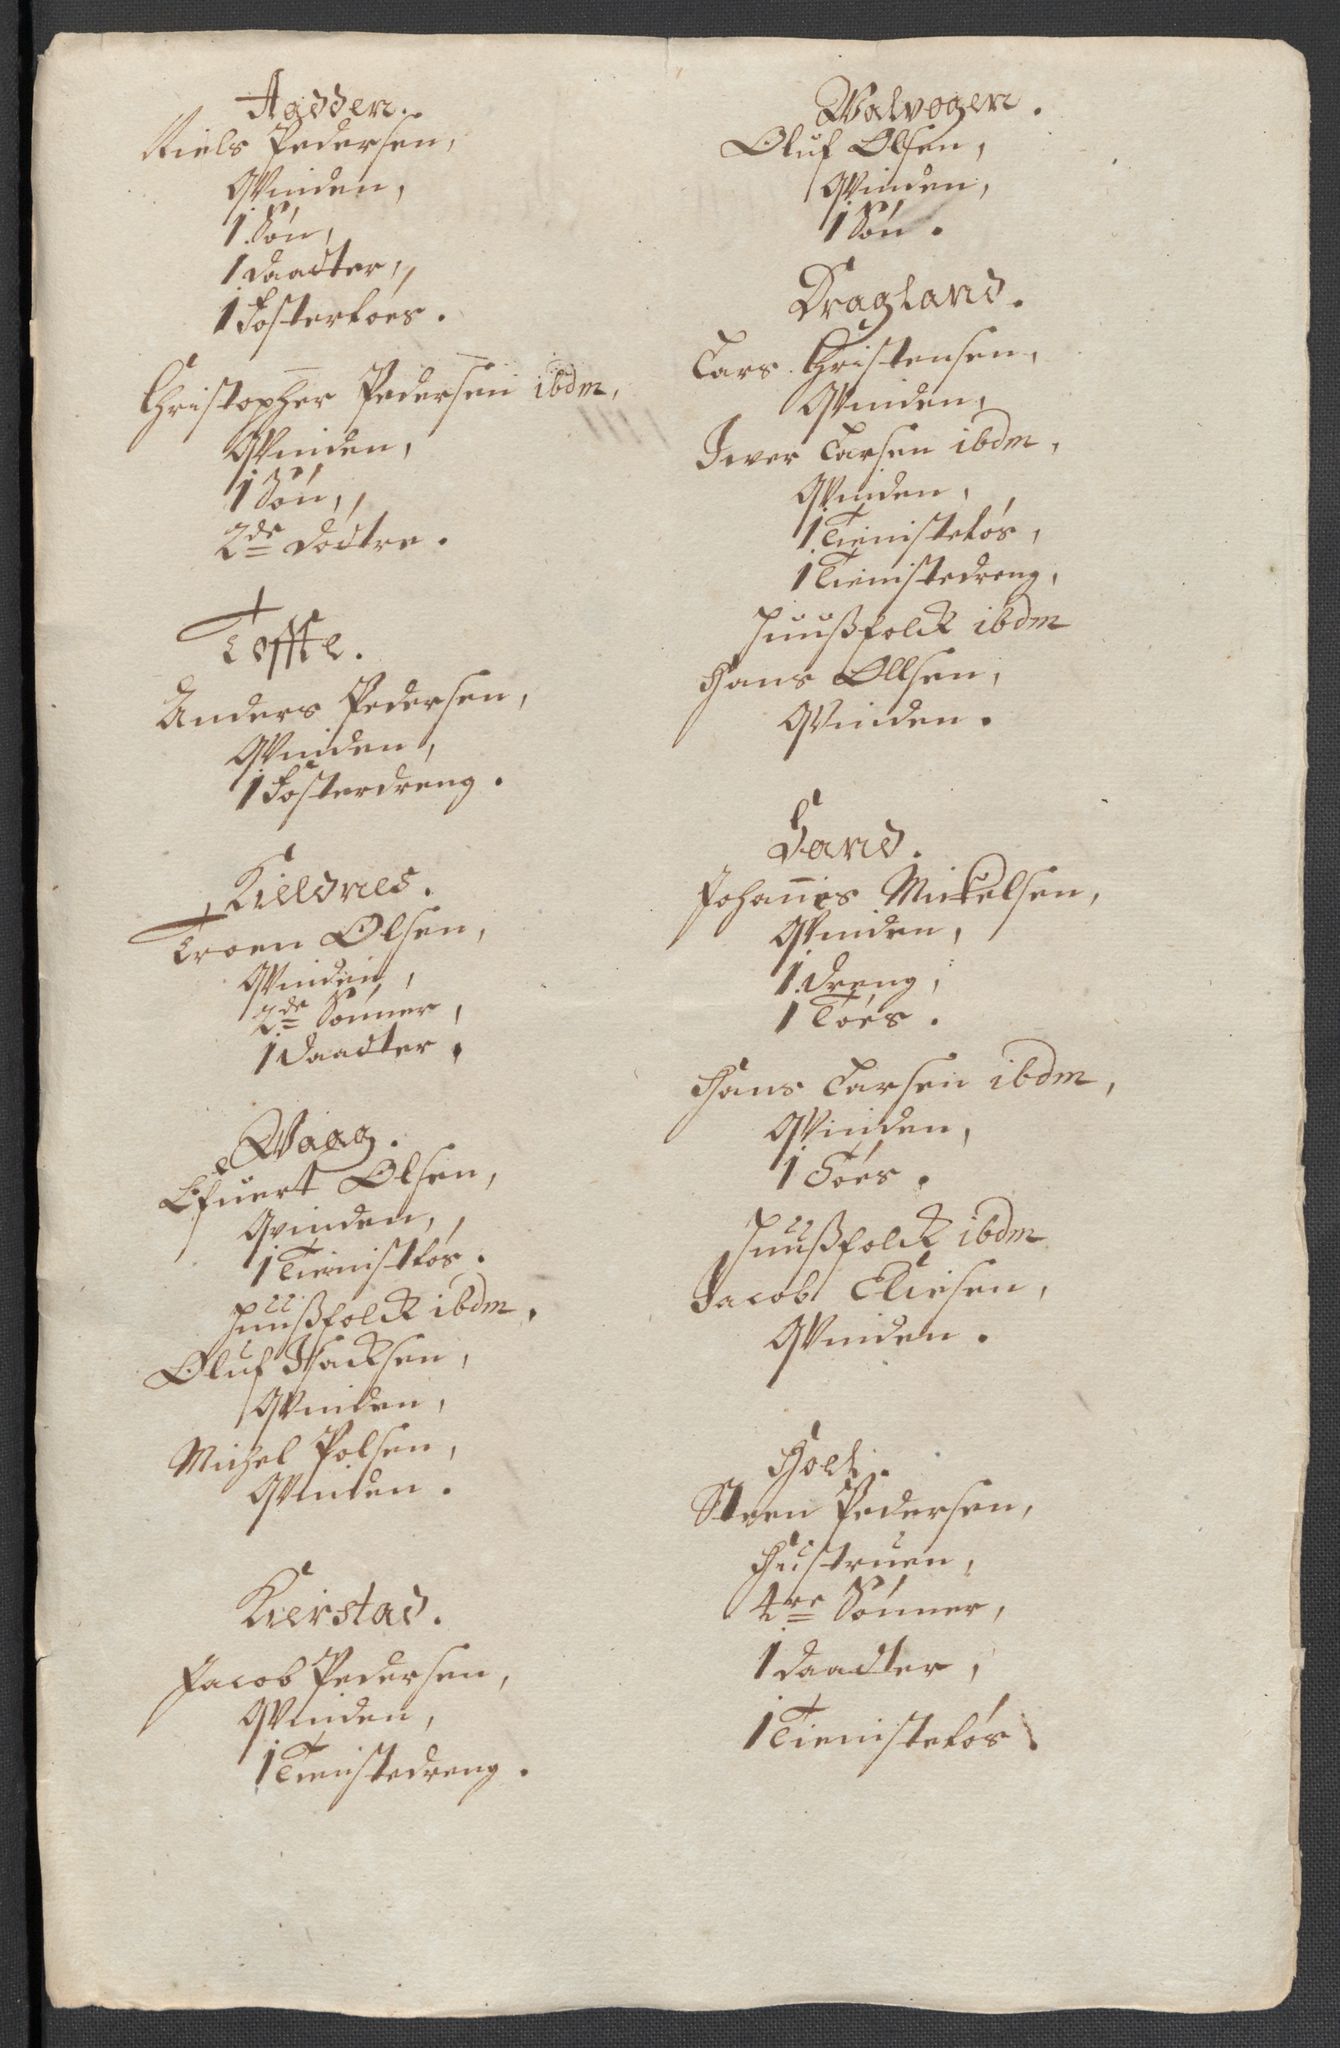 Aadden.
Niels Pedersen,
Qvinden,
1 Søn,
1 Daatter,
1 Fostertøes.
Christopher Pedersen ibdm,
Qvinden,
1 Søn,
2de Døttre.
Tofftе.
Anders Pedersen,
Qvinden,
1 Fosterdreng.
Kieldnes.
Troen Olsen,
Qvinden,
2de Sønner,
1 Daatter.
Waag.
Efuert Olsen,
Qvinden,
1 Tienisttøs.
Huußfolck ibdm.
Oluf Isacksen,
Qvinden,
Michel Polsen,
Qvinden.
Kierstad.
Jacob Pedersen,
Qvinden,
1 Tienistedreng.
Walvogen.
Oluf Olsen,
Qvinden,
1 Søn.
Dragland.
Lars Christensen,
Qvinden,
Iver Larsen ibdm,
Qvinden,
1 Tienistetøs,
1 Tienistedreng,
Huußfolck ibdm
Hans Ollsen,
Qvinden.
Sand.
Johannes Mickelsen,
Qvinden,
1 Dreng,
1 Tøes.
Hans Larsen ibdm,
Qvinden,
1 Tøes.
Huußfolck ibdm
Jacob Eliesen,
Qvinden.
Holl.
Steen Pedersen,
Hustruen,
4re Sønner,
1 Daatter,
1 Tienistetøs.